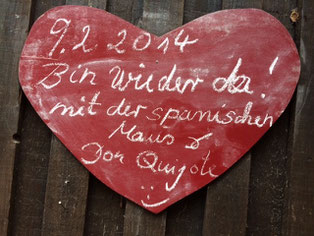 9.2.2014
Bin wieder da!
mit der spanischen
Maus &
Don Quijote